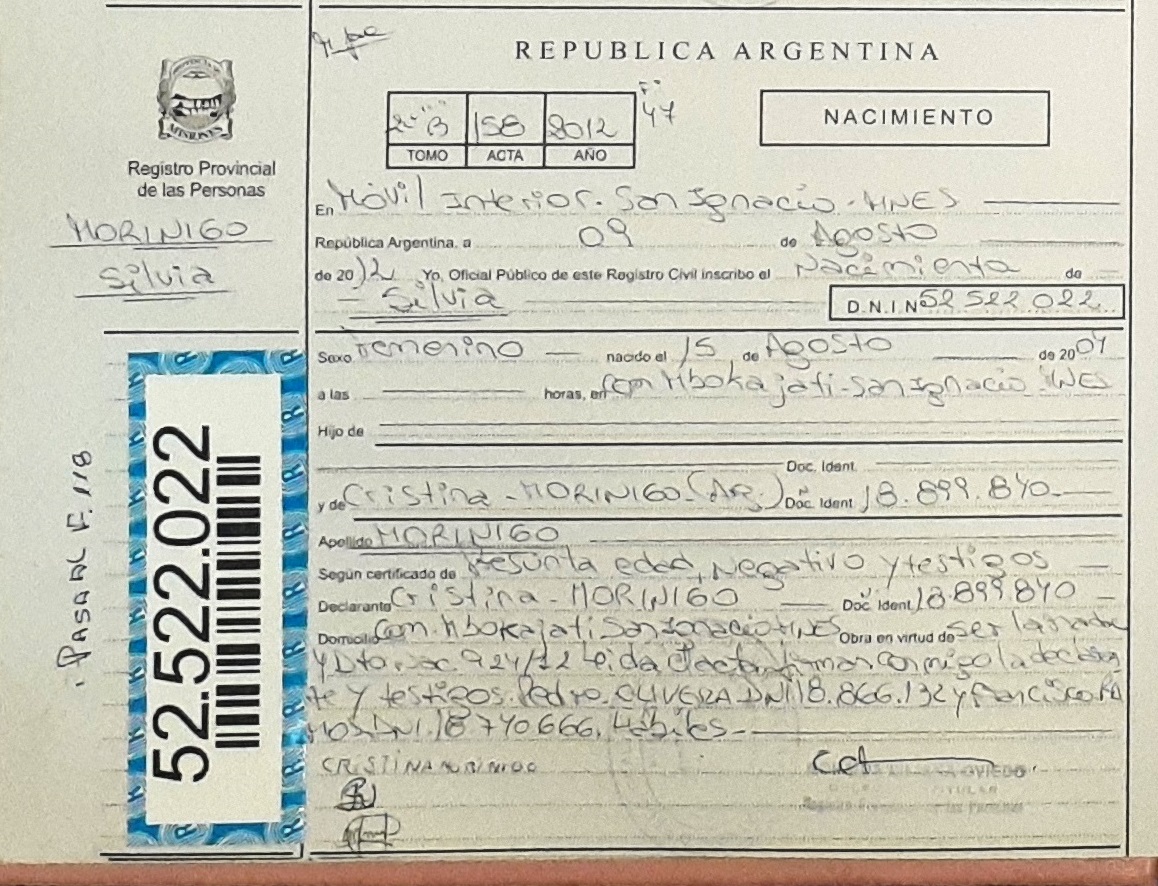 REPUBLICA ARGENTINA
Fº 47
2º B 158 2012
TOMO ACTA AÑO
NACIMIENTO
MISIONES
Registro Provincial
de las Personas
MORINIGO
Silvia
PASA AL F. 118
52.522.022
En Móvil Interior. San Ignacio - MNES
República Argentina, a 09 de Agosto
de 2012 Yo, Oficial Público de este Registro Civil inscribo el Nacimiento de
Silvia D.N.I.Nº 52 522 022
Sexo Femenino nacido el 15 de Agosto de 2004
a las horas, en Com. Mbokajati - San Ignacio MNES
Hijo de
Doc. Ident.
y de Cristina - MORINIGO (AR.) Doc. Ident. 18.899.840
Apellido MORINIGO
Según certificado de Presunta edad, Negativo y testigos
Declarante Cristina - MORINIGO Doc. Ident. 18.899 840
Domicilio Com. Mbokajati San Ignacio MNES Obra en virtud de ser la madre
y Dto. 924/12 Leída el acta firman conmigo la declaran
te y testigos. Pedro OLIVERA DNI 18.866.132 y Francisco RA
MOS DNI. 18 740.666, Hábiles
CRISTINA MORINIGO
OVIEDO
TITULAR
las Personas